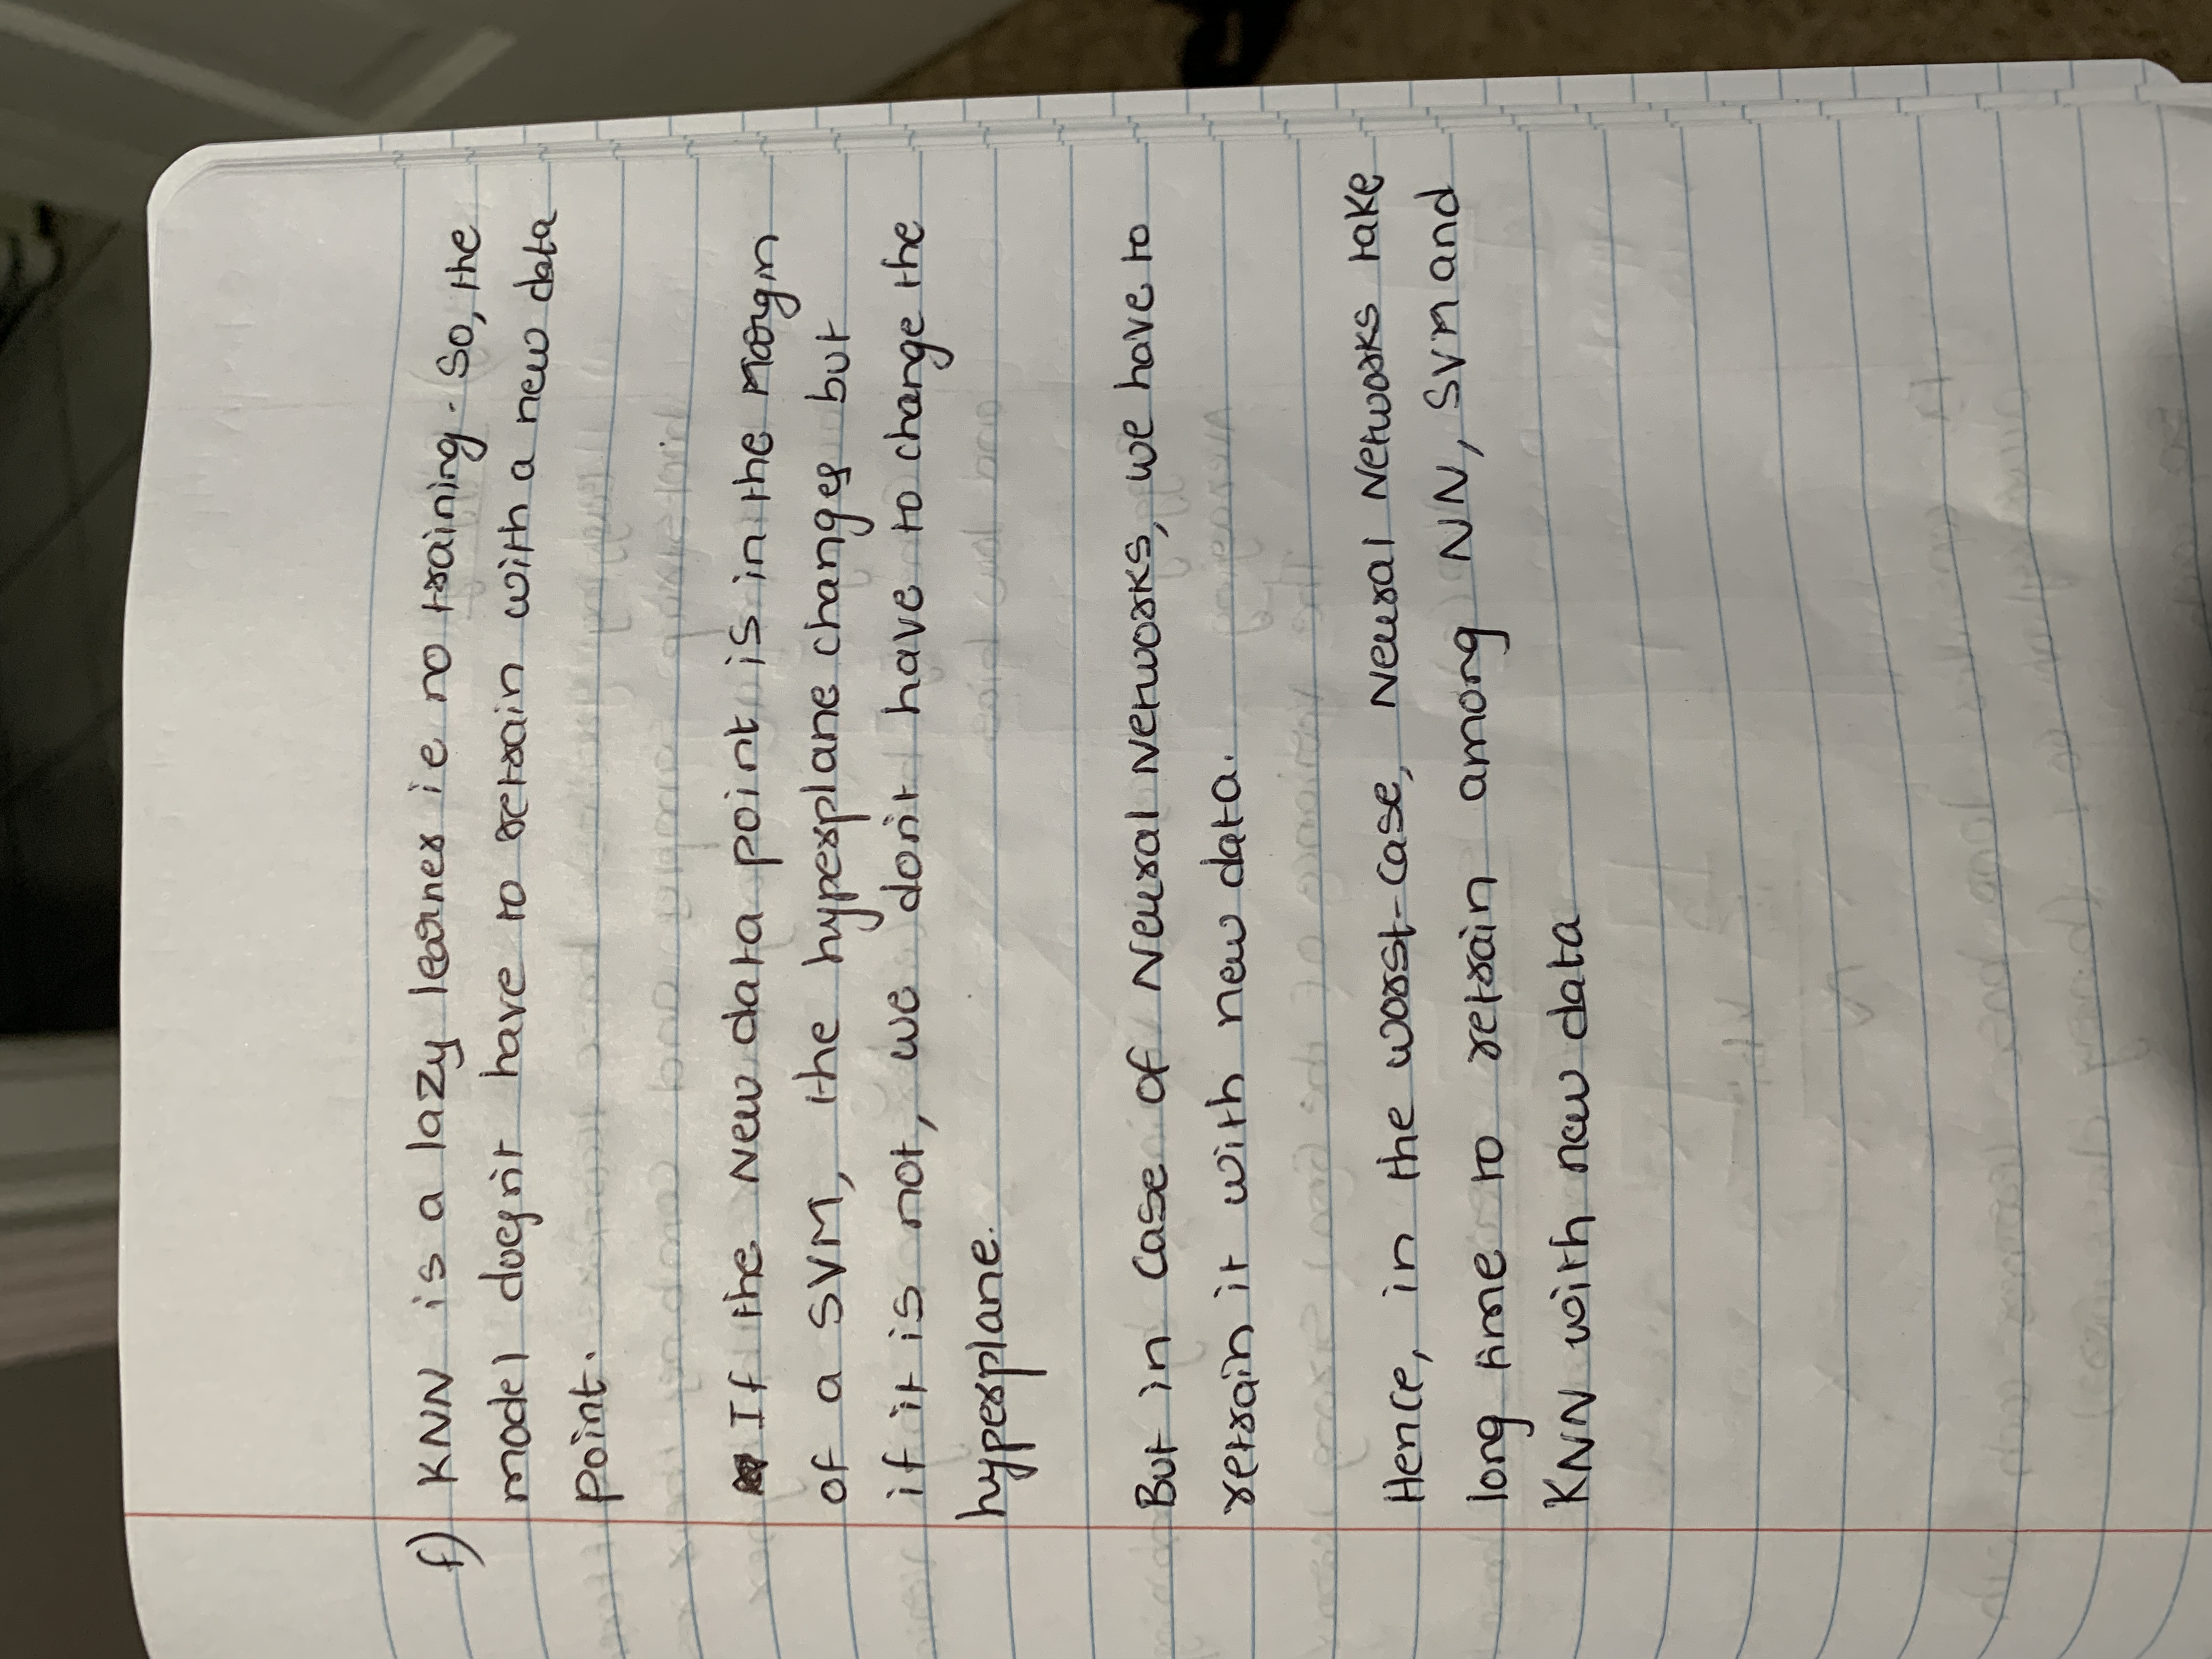 f) KNN is a lazy learner ie no training. So, the
model doesn't have to retrain with a new data
point.
If the New data point is in the Margin
of a SVM, the hyperplane changes but
if it is not, we don't have to change the
hyperplane.
But in case of Neural Networks, we have to
retrain it with new data.
Hence, in the worst-case, Neural Networks take
long time to retrain among NN, SVM and
KNN with new data